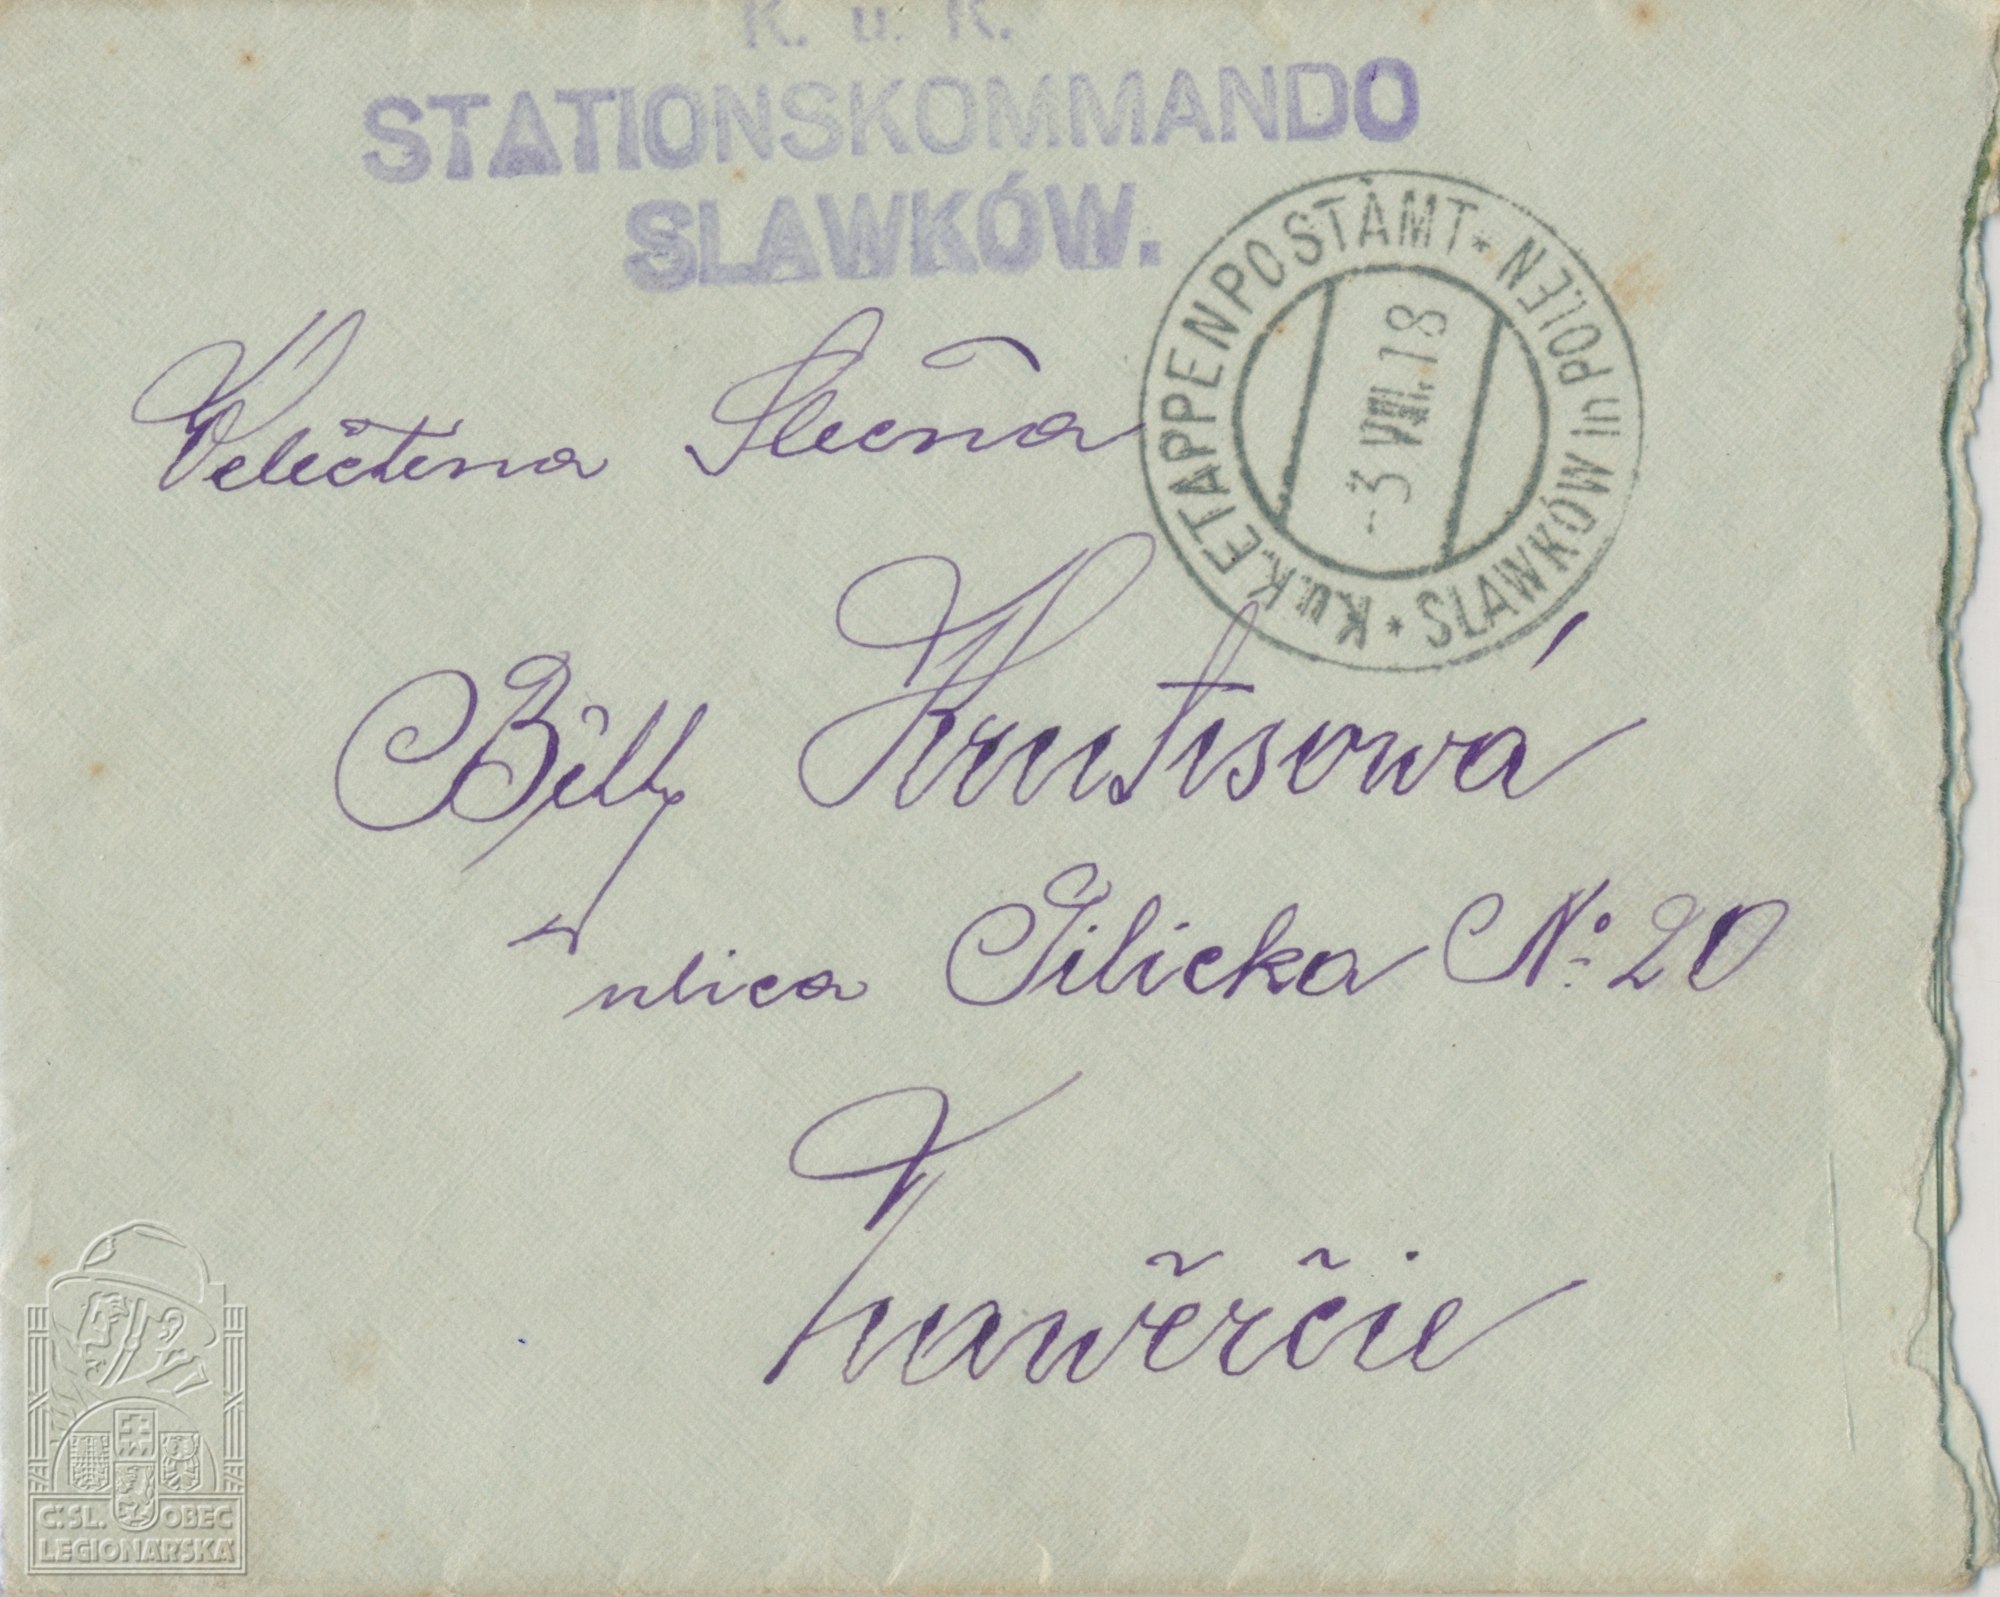 K. u. K.
STATIONSKOMMANDO
SLAWKÓW.
K.u.K. ETAPPENPOSTÀMT * SLAWKÓW in POLEN *
-3 VIII. 18
Velectěna Slečna
Billy Krutisowá
ulica Pilicka No: 20
Zawěrčie
Č.SL. OBEC
LEGIONÁŘSKÁ